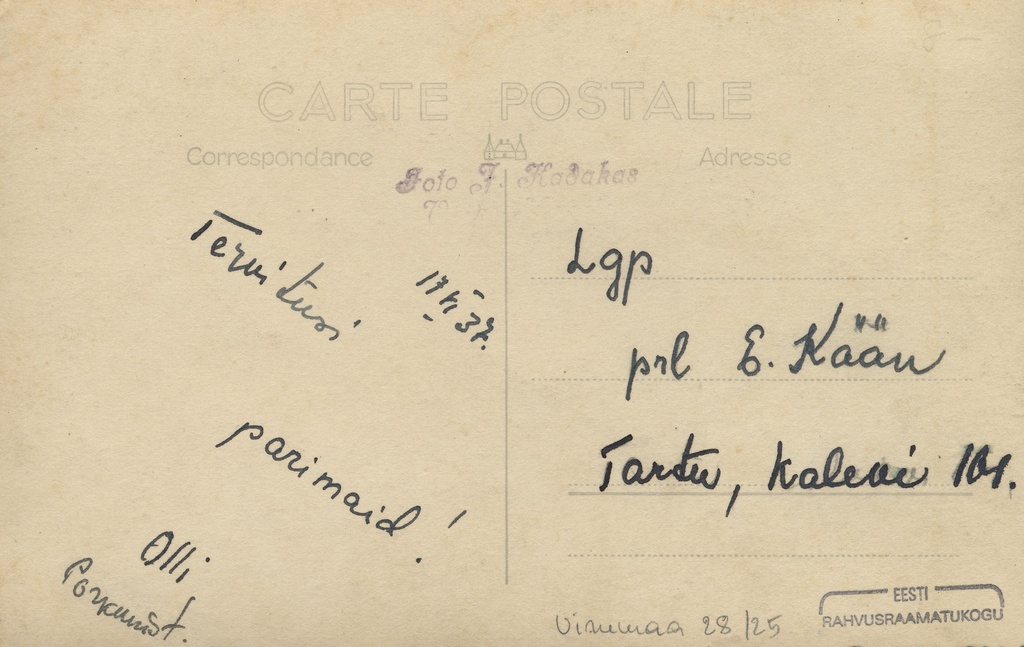 CARTE POSTALE
Correspondance
Adresse
Foto J. Kadakas
Tervitusi
17 VI 37.
parimaid!
Olli
Porkunist.
Lgp
prl E. Kään
Tartu, Kalevi 101.
Virumaa 28/25
EESTI
RAHVUSRAAMATUKOGU